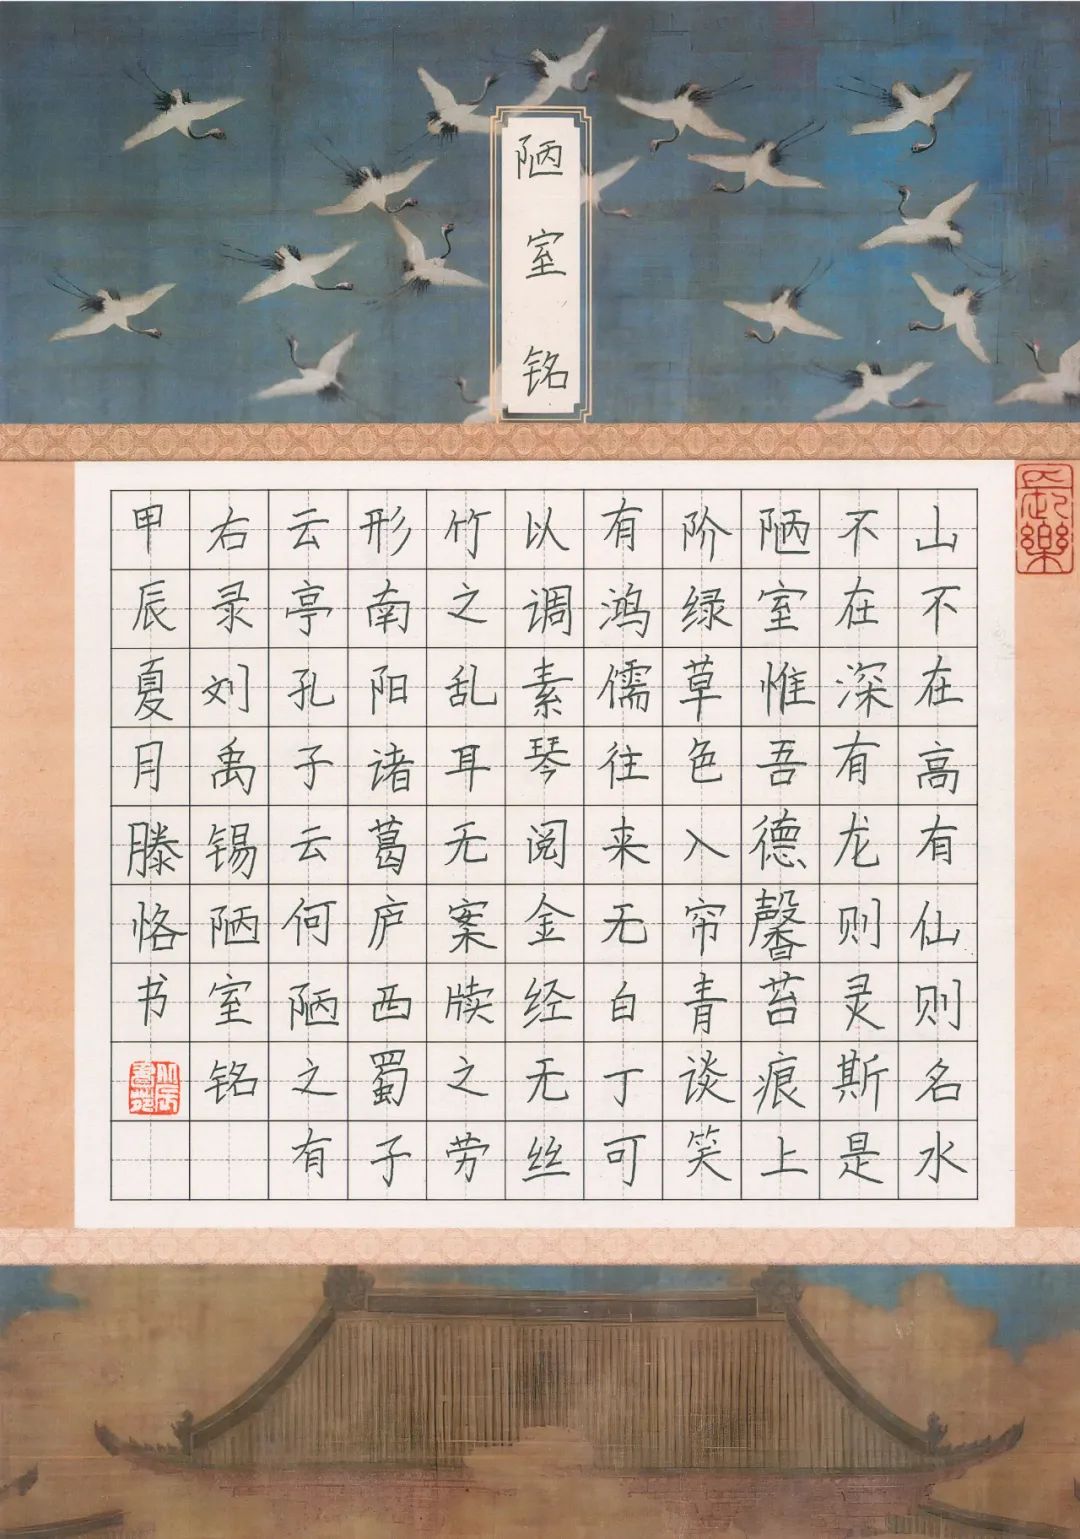 陋室铭
山不在高有仙则名水
不在深有龙则灵斯是
陋室惟吾德馨苔痕上
阶绿草色入帘青谈笑
有鸿儒往来无白丁可
以调素琴阅金经无丝
竹之乱耳无案牍之劳
形南阳诸葛庐西蜀子
云亭孔子云何陋之有
右录刘禹锡陋室铭
甲辰夏月滕恪书